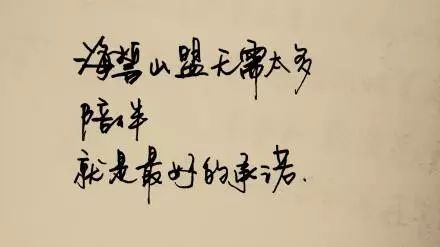 海誓山盟无需太多
陪伴
就是最好的承诺.